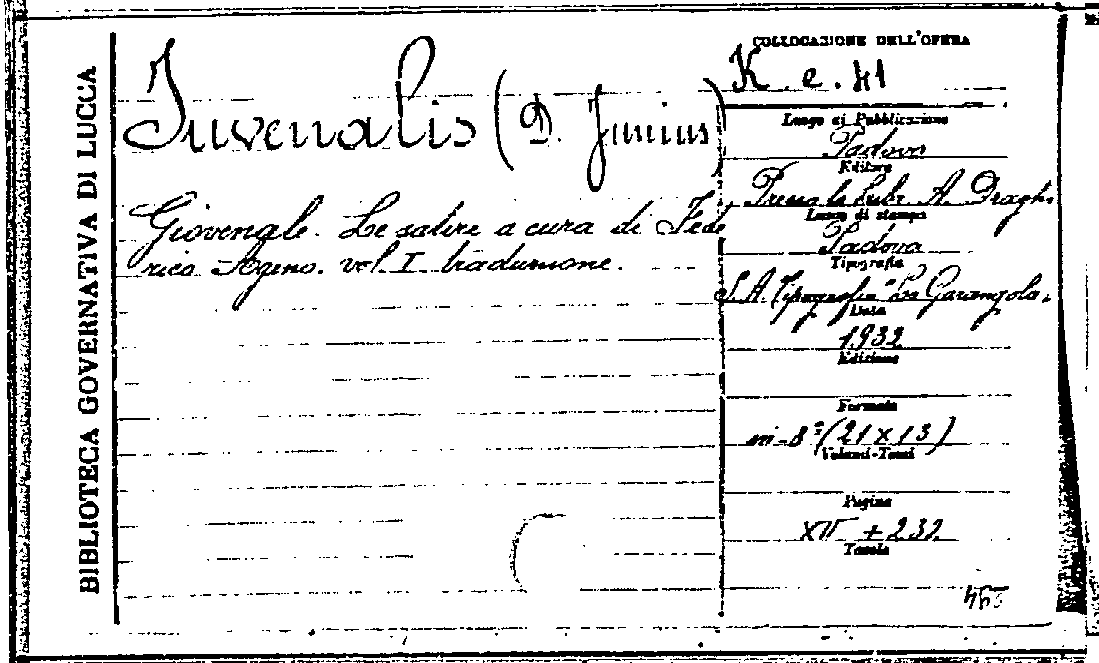 BIBLIOTECA GOVERNATIVA DI LUCCA
Juvenalis (D. Junius)
Giovenale. Le satire a cura di Fede
rico Ageno. vol I traduzione.
COLLOCAZIONE DELL'OPERA
K. e. 41
Luogo di Pubblicazione
Padova
Editore
Presso la Libr. A. Draghi
Luogo di stampa
Padova
Tipografia
S. A. Tipografia "La Garangola"
Data
1932
Edizione
Formato
in-8º (21 x 13)
Volumi-Tomi
Pagine
+ 232
Tavole